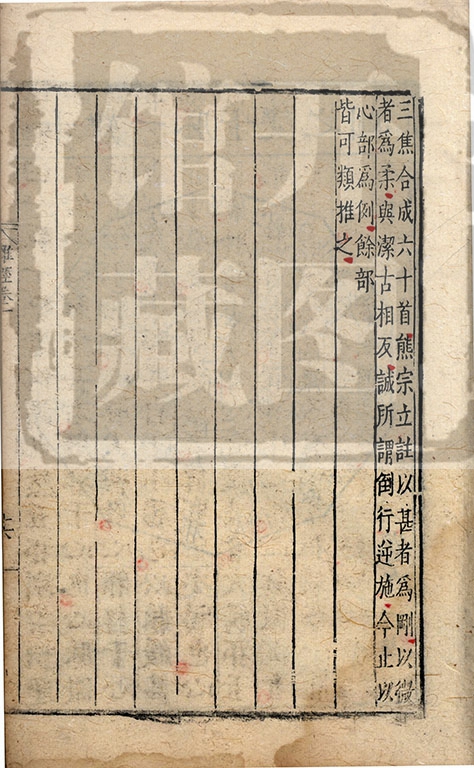 三焦合成六十首熊宗立註以甚者爲剛以微
者爲柔與潔古相反誠所謂倒行逆施今止以
心部爲例餘部
皆可類推之